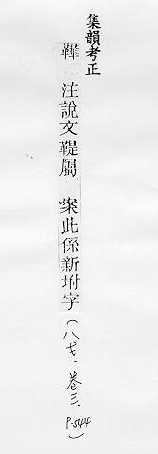 集韻考正
鞾 注說文鞮屬 案此係新坿字(八七、卷三、P.544)